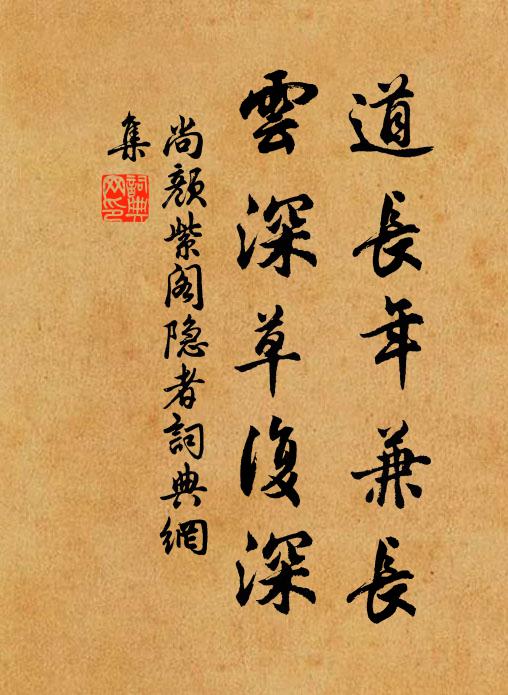 道長年兼長
雲深草復深
尚顏紫阁隐者詞典網
集
詞典網印